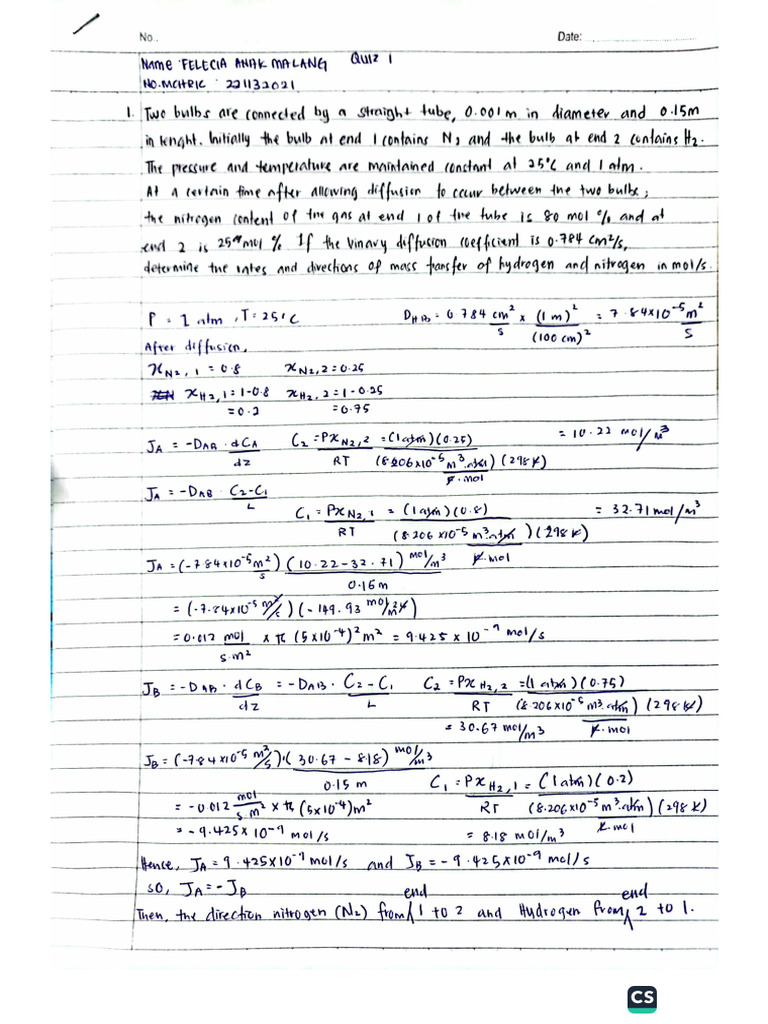 No..
Date:
Name : FELECIA ANAK MALANG QUIZ 1
NO.MATRIC : 221132021
1. Two bulbs are connected by a straight tube, 0.001 m in diameter and 0.15m
in lenght. Initially the bulb at end 1 contains N2 and the bulb at end 2 contains H2.
The pressure and temperature are maintained constant at 25°C and 1 atm.
At a certain time after allowing diffusion to occur between the two bulbs;
the nitrogen content of the gas at end 1 of the tube is 80 mol % and at
end 2 is 25 mol %. If the vinary diffusion coefficient is 0.784 cm²/s,
determine the rates and directions of mass transfer of hydrogen and nitrogen in mol/s.
P = 1 atm , T = 25°C DAB = 0.784 cm²/s × (1 m)²/(100 cm)² = 7.84×10⁻⁵ m²/s
After diffusion,
xN2,1 = 0.8 xN2,2 = 0.25
xH2,1 = 1-0.8 xH2,2 = 1-0.25
= 0.2 = 0.75
JA = -DAB · dCA/dz C2 = PxN2,2/RT = (1 atm)(0.25)/(8.206×10⁻⁵ m³.atm/K.mol)(298 K) = 10.22 mol/m³
JA = -DAB · C2-C1/L
C1 = PxN2,1/RT = (1 atm)(0.8)/(8.206×10⁻⁵ m³.atm/K.mol)(298 K) = 32.71 mol/m³
JA = (-7.84×10⁻⁵ m²/s) (10.22-32.71) mol/m³/0.15 m
= (-7.84×10⁻⁵ m²/s)(-149.93 mol/m⁴)
= 0.012 mol/s.m² × π (5×10⁻⁴)² m² = 9.425 × 10⁻⁹ mol/s
JB = -DAB · dCB/dz = -DAB · C2-C1/L C2 = PxH2,2/RT = (1 atm)(0.75)/(8.206×10⁻⁵ m³.atm/K.mol)(298 K)
= 30.67 mol/m³
JB = (-7.84×10⁻⁵ m²/s)·(30.67-8.18) mol/m³/0.15 m
C1 = PxH2,1/RT = (1 atm)(0.2)/(8.206×10⁻⁵ m³.atm/K.mol)(298 K)
= -0.012 mol/s.m² × π (5×10⁻⁴) m²
= -9.425 × 10⁻⁹ mol/s = 8.18 mol/m³
Hence, JA = 9.425×10⁻⁹ mol/s and JB = -9.425×10⁻⁹ mol/s
so, JA = -JB
Then, the direction nitrogen (N2) from end 1 to 2 and Hydrogen from end 2 to 1.
CS